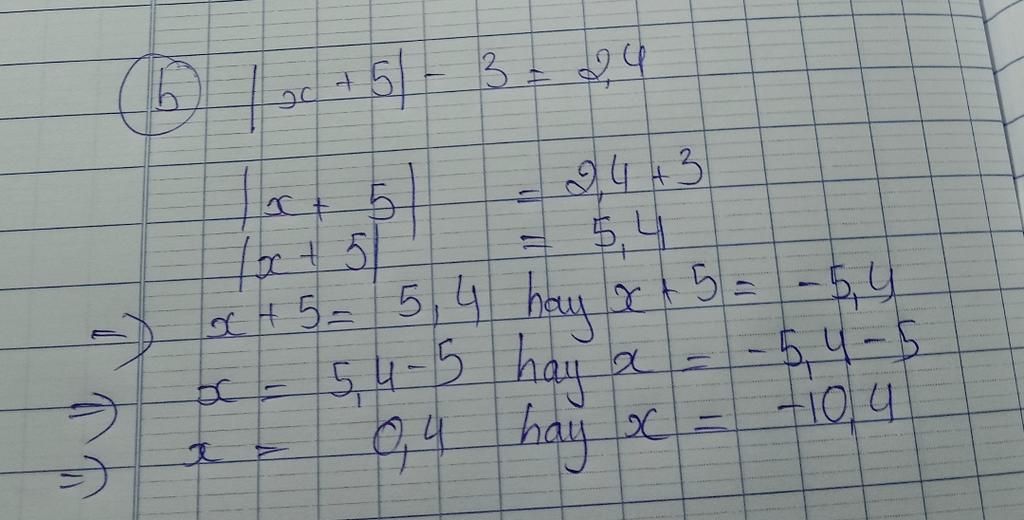 b |x + 5| - 3 = 2,4
|x + 5| = 2,4 + 3
|x + 5| = 5,4
=) x + 5 = 5,4 hay x + 5 = - 5,4
=) x = 5,4 - 5 hay x = - 5,4 - 5
=) x = 0,4 hay x = -10,4